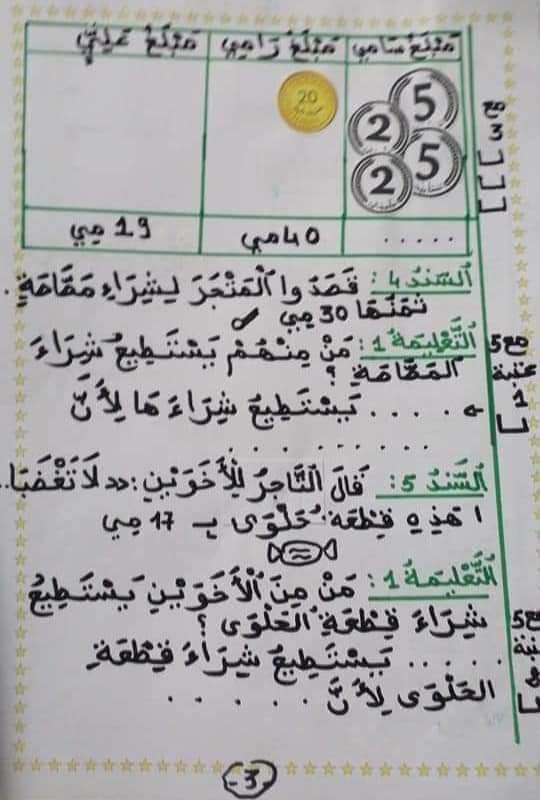 مَبْلَغُ سَامِي مَبْلَغُ رَامِي مَبْلَغُ عَلِيّ
20
5
2
5
2
مع 3
..... 40 مي 19 مي
السَّنَدُ 4: قَصَدُوا الْمَتْجَرَ لِشِرَاءِ مَمَّامَةٍ.
ثَمَنُهَا 30 مي
التَّعْلِيمَةُ 1: مَنْ مِنْهُمْ يَسْتَطِيعُ شِرَاءَ
مع 5
الْمَمَّامَةِ ؟
عتبة
1
..... يَسْتَطِيعُ شِرَاءَهَا لِأَنَّ
..........
السَّنَدُ 5: قَالَ التَّاجِرُ لِلْأَخَوَيْنِ: «لَا تَغْضَبَا.
هَذِهِ قِطْعَةُ حَلْوَى بِـ 17 مي
التَّعْلِيمَةُ 1: مَنْ مِنَ الْأَخَوَيْنِ يَسْتَطِيعُ
شِرَاءَ قِطْعَةِ الْحَلْوَى ؟
مع 5
..... يَسْتَطِيعُ شِرَاءَ قِطْعَةِ
الْحَلْوَى لِأَنَّ .....
-3-